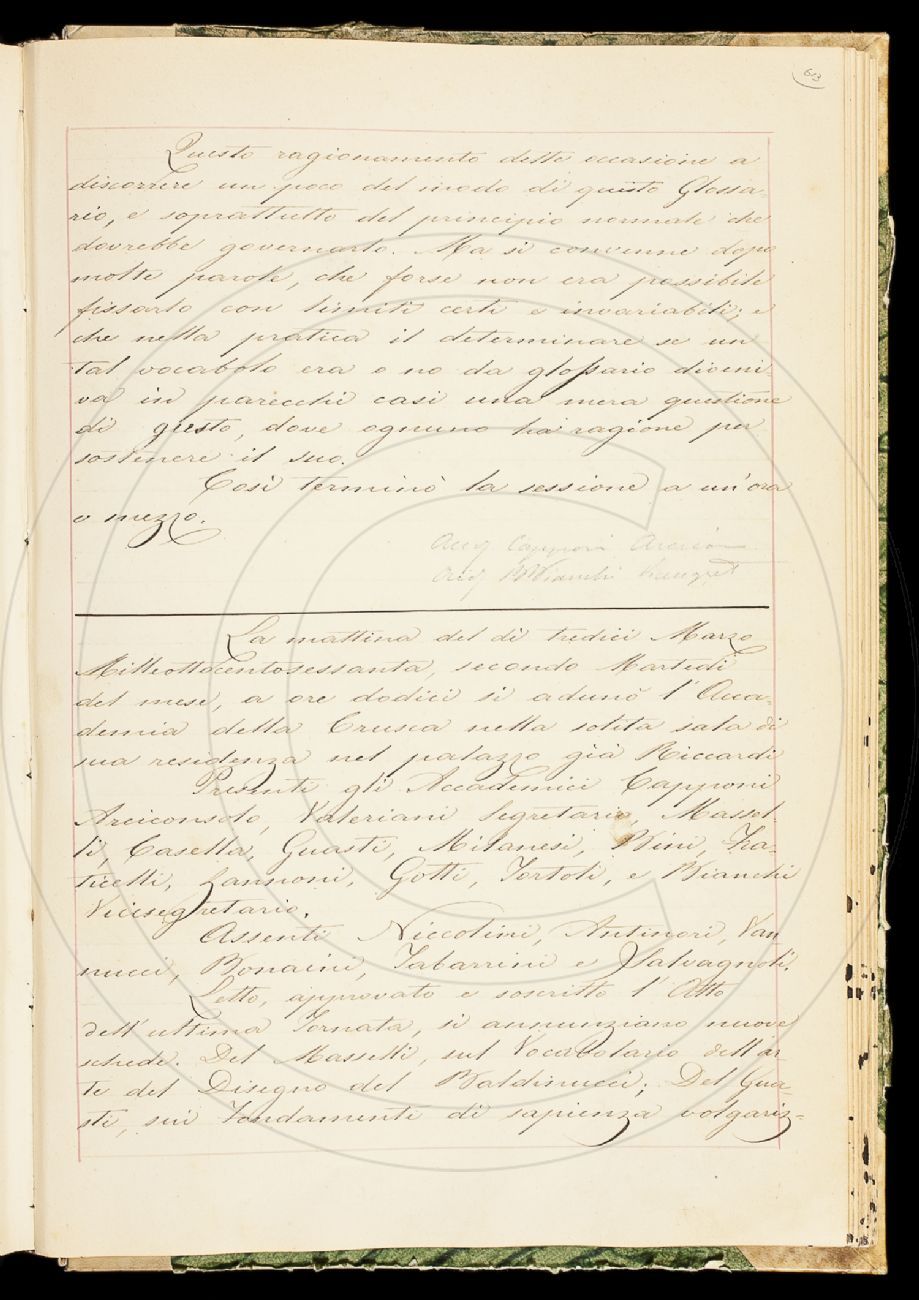 613
Questo ragionamento dette occasione a
discorrere un poco del modo di questo Glossa-
rio, e soprattutto del principio normale che
dovrebbe governarlo. Ma si convenne dopo
molte parole, che forse non era possibile
fissarlo con limiti certi e invariabili; e
che nella pratica il determinare se un
tal vocabolo era o no da glossario diveni-
va in parecchi casi una mera questione
di gusto, dove ognuno ha ragione per
sostenere il suo.
Così terminò la sessione a un'ora
e mezzo.
Capponi Arcicon
Bianchi
La mattina del dì tredici Marzo
Milleottocentosessanta, secondo Martedì
del mese, a ore dodici si adunò l'Acca-
demia della Crusca nella solita sala di
sua residenza nel palazzo già Riccardi
Presenti gli Accademici Capponi
Arciconsolo, Valeriani Segretario, Massel-
li, Casella, Guasti, Milanesi, Bini, Fra-
ticelli, Zannoni, Gotti, Tortoli, e Bianchi
Vicisegretario.
Assenti Niccolini, Antinori, Van
nucci, Bonaini, Tabarrini e Salvagnoli.
Letto, approvato e soscritto l'Atto
dell'ultima Tornata, si annunziano nuove
schede. Del Masselli, sul Vocabolario dell'ar-
te del Disegno del Baldinucci; Del Gua-
sti, sui Fondamenti di sapienza volgariz-